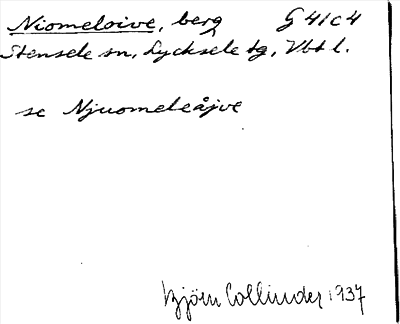 Niomeloive, berg G 41c4
Stensele sn, Lycksele tg, Vbt l.
se Njuomeleåjve
Björn Collinder 1937